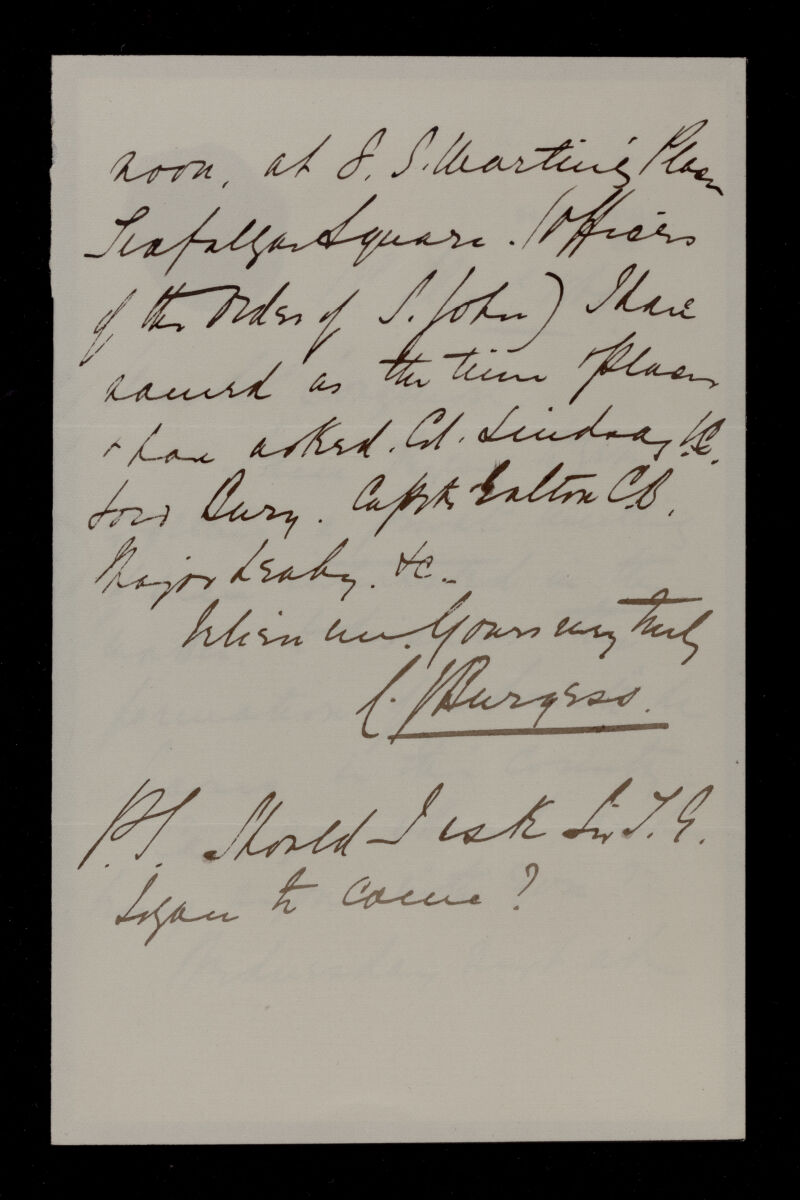 noon, at 8. S. Martin's Place
Trafalgar Square. (Offices
of the Order of S. John) I have
named as the time & place
& have asked. Col. Lindsay V.C.
Lord Bury. Capt. Galton C.B.
Major Leahy. &c.
Believe me. Yours very truly
C. J Burgess.
P.S. Should I ask Sir T. G.
Logan to come?